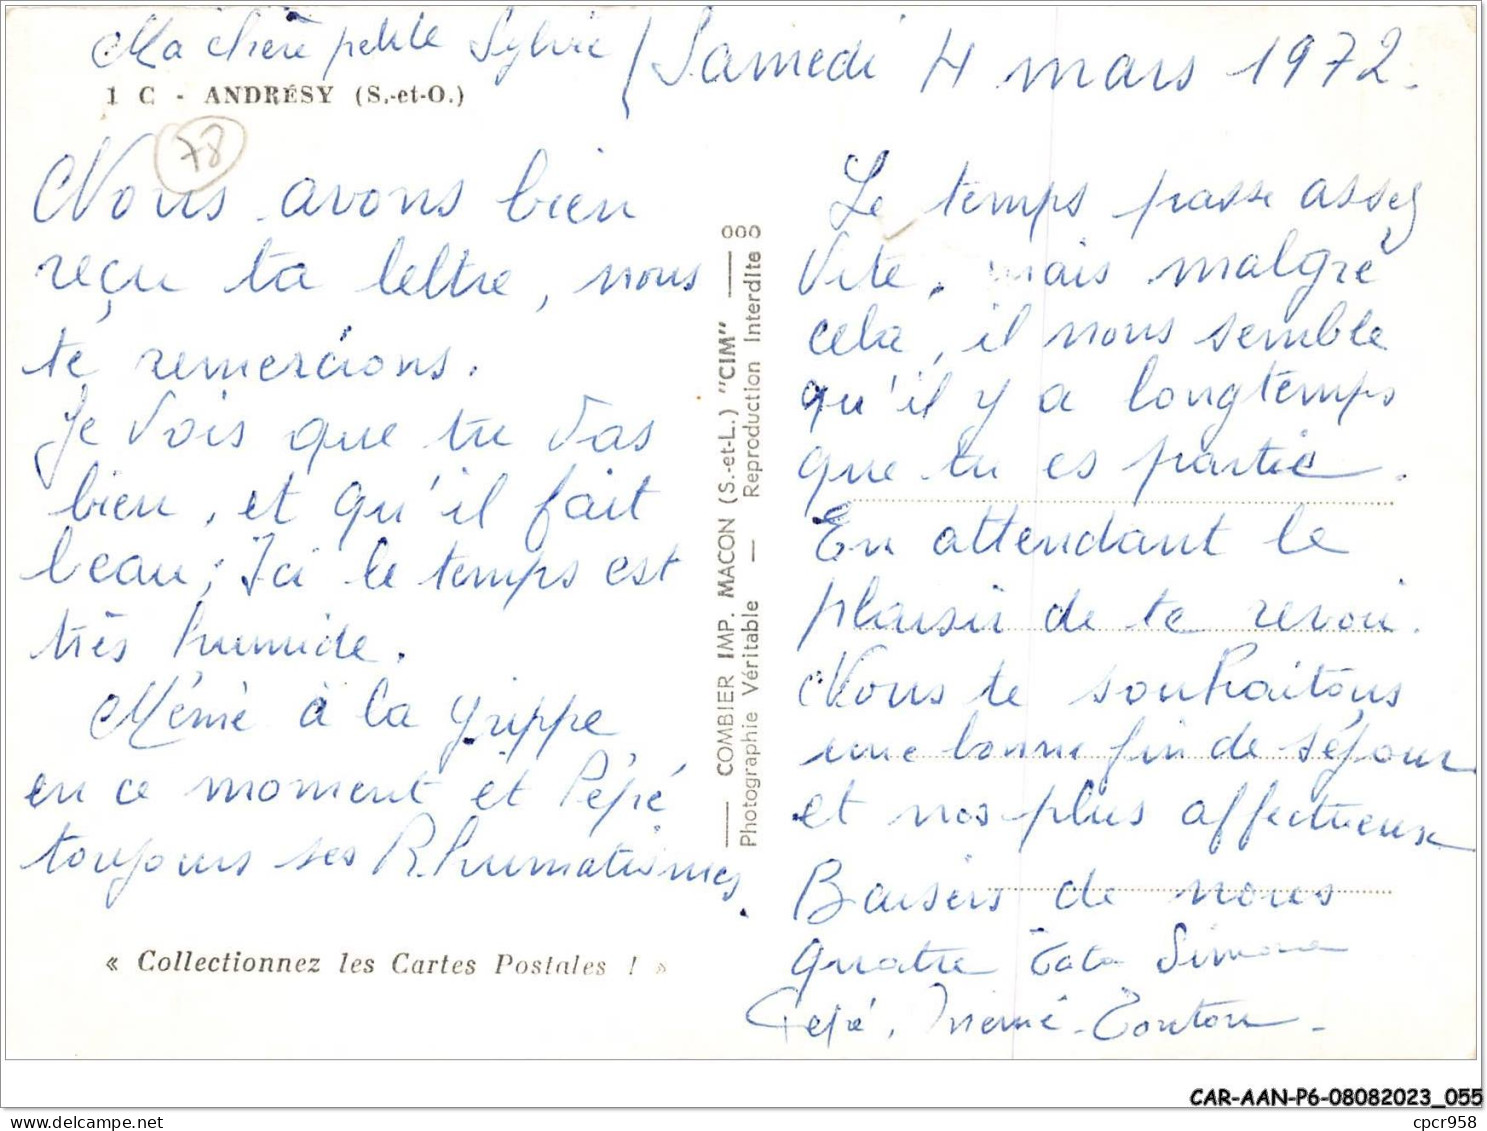 Ma chère petite Sylvie / Samedi 4 mars 1972.
1 C - ANDRÉSY (S.-et-O.)
78
Nous avons bien
reçu ta lettre, nous
te remercions.
Je vois que tu vas
bien, et qu'il fait
beau; Ici le temps est
très humide.
Mémé à la grippe
en ce moment et Pépé
toujours ses Rhumatismes.
« Collectionnez les Cartes Postales ! »
COMBIER IMP. MACON (S.-et-L.) "CIM"
Photographie Véritable — Reproduction Interdite
Le temps passe assez
vite, mais malgré
cela, il nous semble
qu'il y a longtemps
que tu es partie.
En attendant le
plaisir de te revoir.
Nous te souhaitons
une bonne fin de séjour
et nos plus affectueux
Baisers de nous
quatre Tata Simone
Pépé, Mémé - Tonton -
CAR-AAN-P6-08082023_055
cpcr958